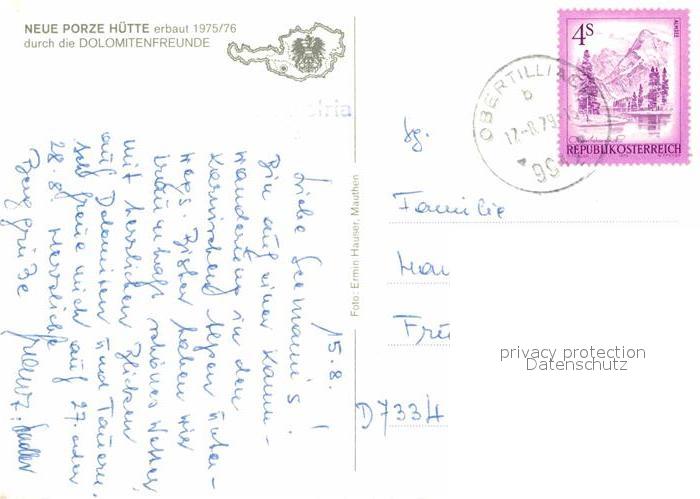 NEUE PORZE HÜTTE erbaut 1975/76
durch die DOLOMITENFREUNDE
4S
ALMSEE
REPUBLIK ÖSTERREICH
OBERTILLIACH
b
17.-8.79
Foto: Ermin Hauser, Mauthen
15.8.
Liebe Seemann's!
Bin auf einer Kamm-
wanderung in den
Karnischen Alpen unter-
wegs. Bisher haben wir
traumhaft schönes Wetter
mit herrlichen Blicken
auf Dolomiten und Tauern.
Ich freue mich auf 27. oder
28.8. Herzliche
Berggrüße
Familie
D 733
privacy protection
Datenschutz